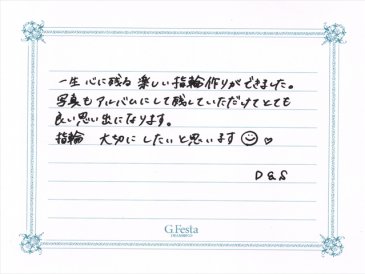 一生 心に残る 楽しい 指輪 作りができました。
写真も アルバムにして 残していただけてとても
良い思い出になります。
指輪 大切に したいと思います
D & S
G.Festa